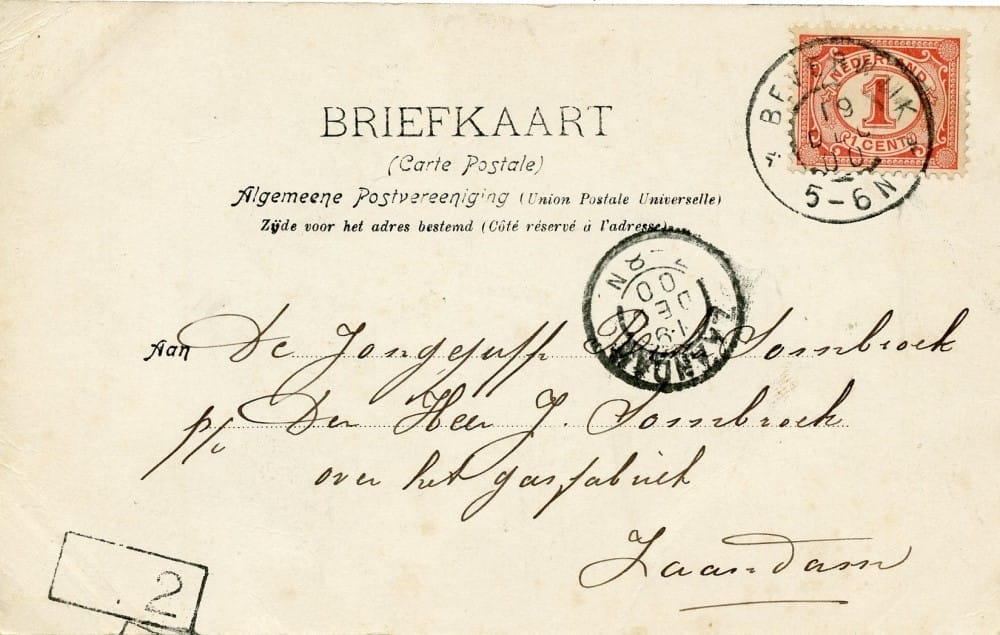 BRIEFKAART
(Carte Postale)
Algemeene Postvereeniging (Union Postale Universelle)
Zijde voor het adres bestemd (Côté réservé à l'adresse)
NEDERLAND
1
1 CENT
BEVERWIJK
19
DEC
00
5-6N
ZAANDAM
19
DE
00
-8N
Aan De Jongejuff Sombroek
p/a Den Heer J. Sombroek
over het gasfabriek
Zaandam
2